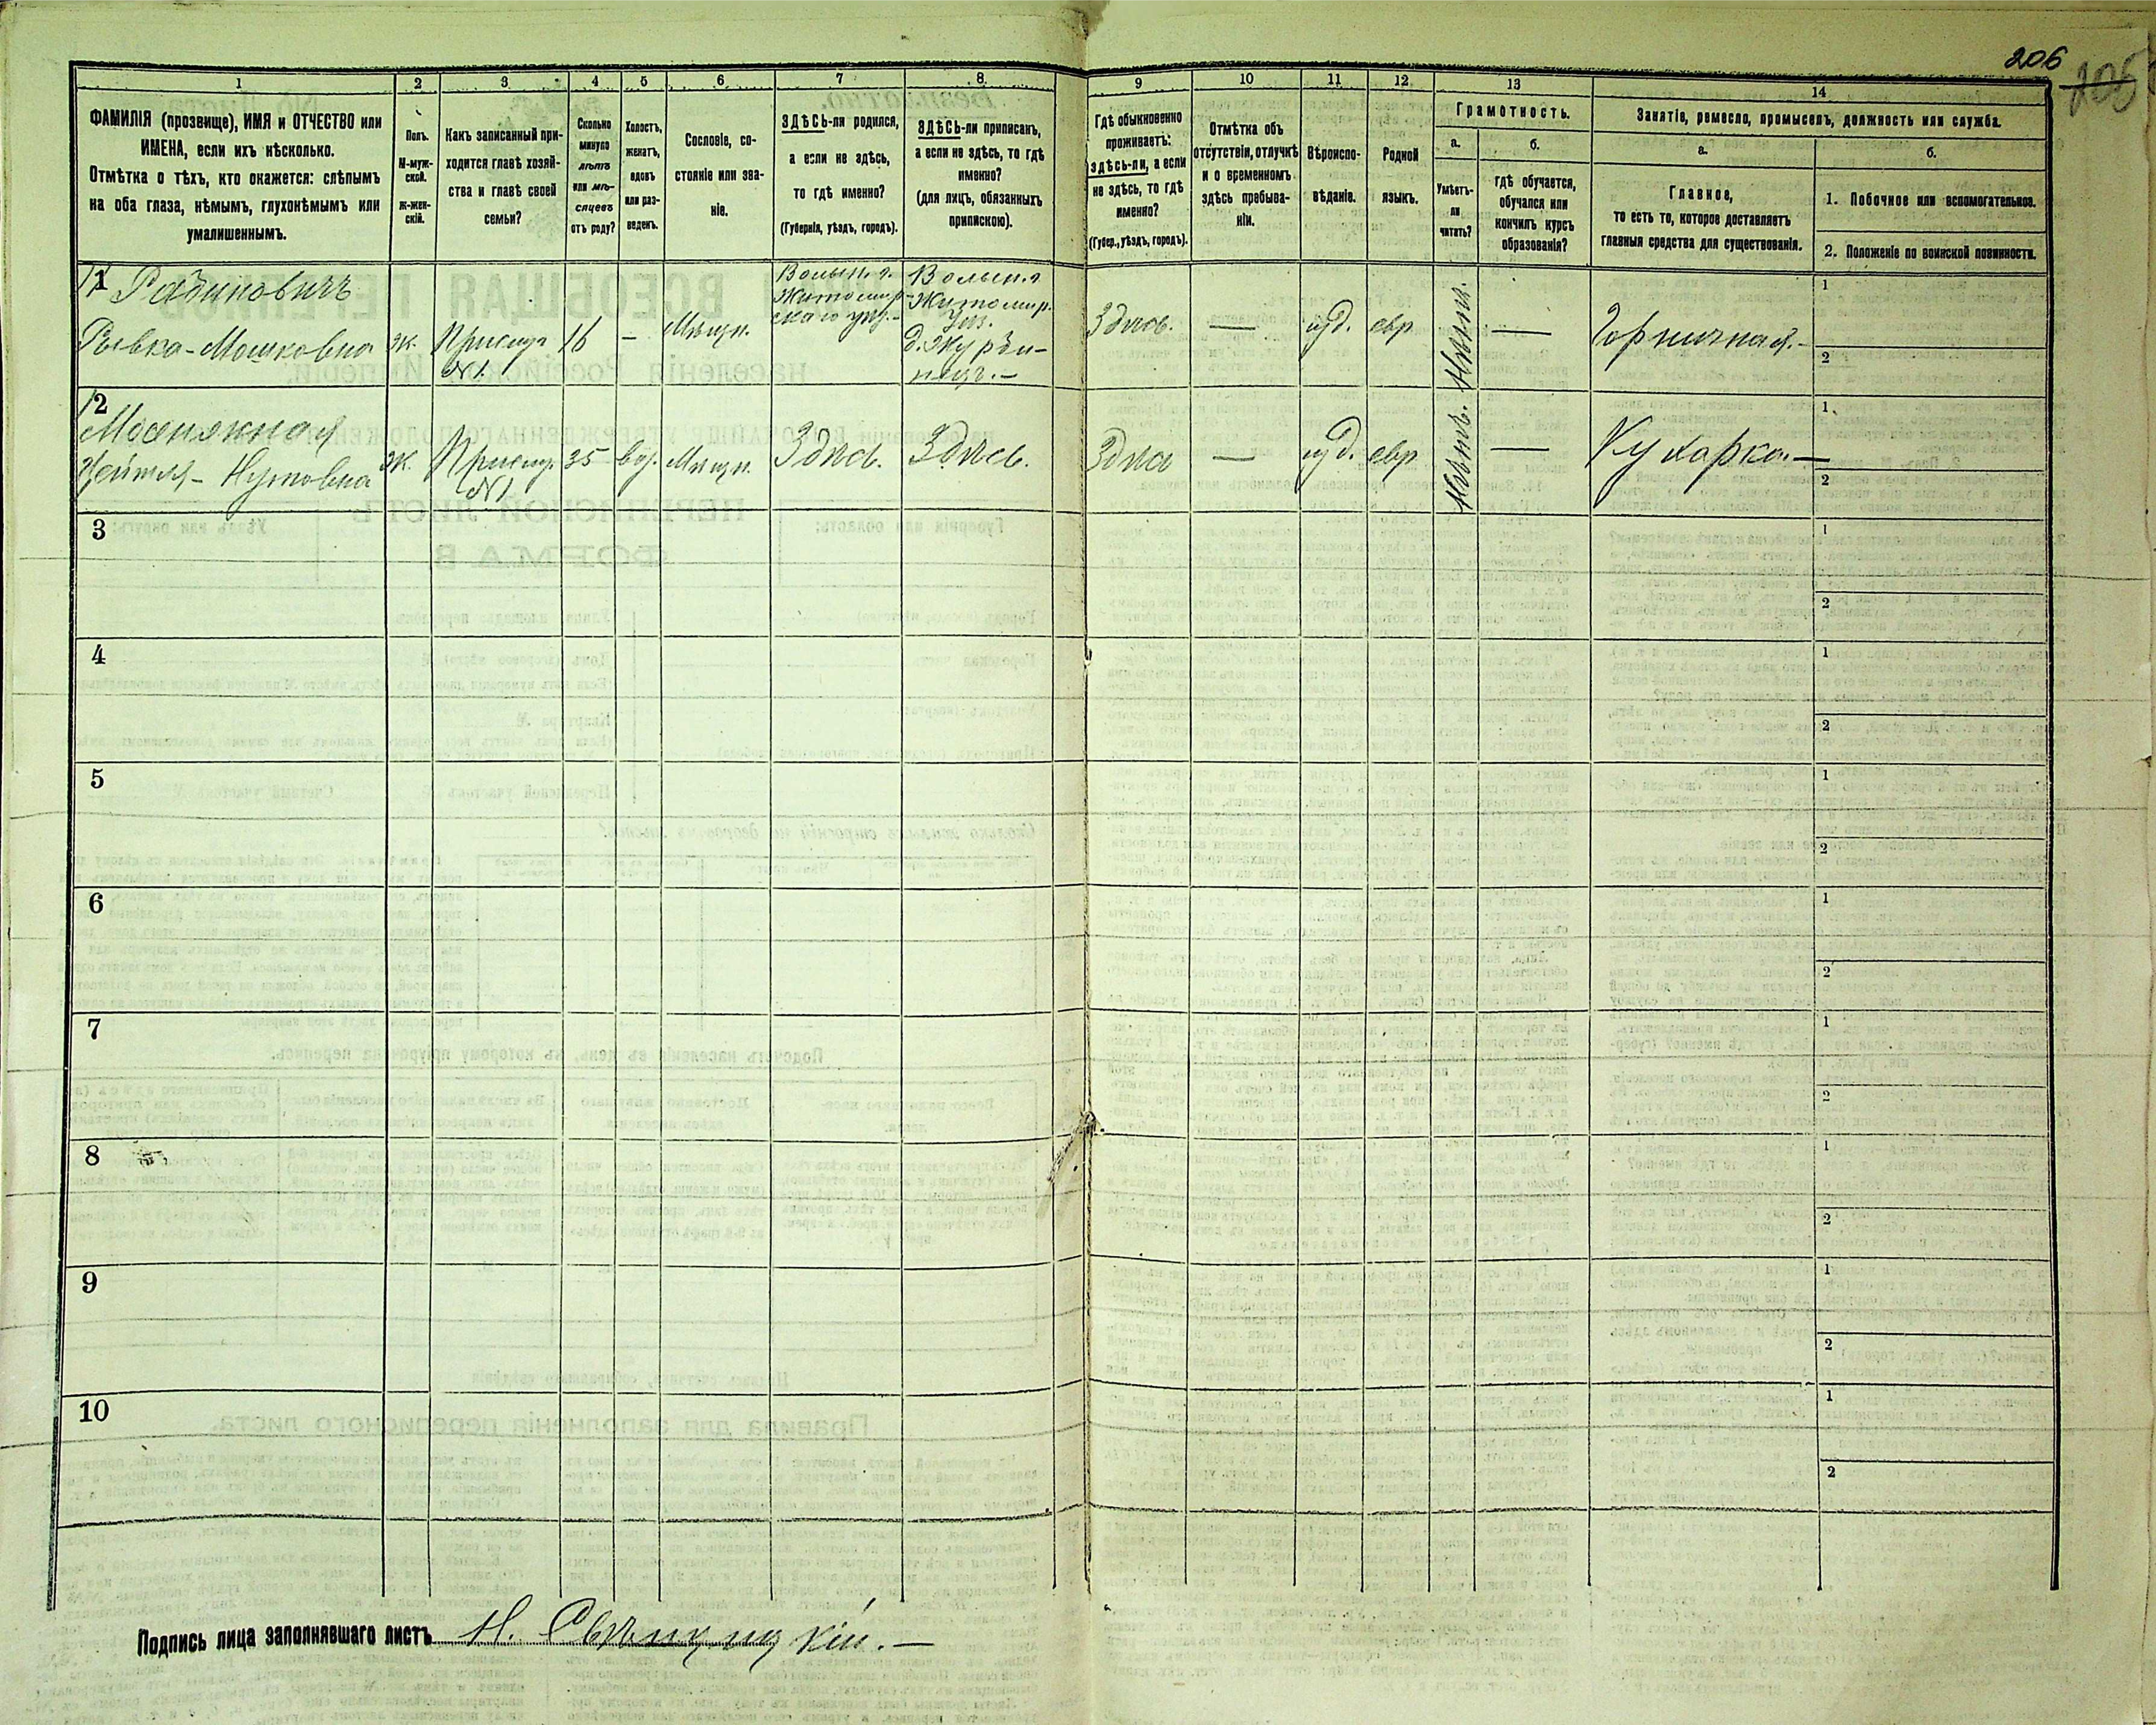 206
205
1
2
3
4
5
6
7
8
9
10
11
12
13
14
ФАМИЛІЯ (прозвище), ИМЯ и ОТЧЕСТВО или
ИМЕНА, если ихъ нѣсколько.
Отмѣтка о тѣхъ, кто окажется: слѣпымъ
на оба глаза, нѣмымъ, глухонѣмымъ или
умалишеннымъ.
Полъ.
М-муж-
ской.
ж-жен-
скій.
Какъ записанный при-
ходится главѣ хозяй-
ства и главѣ своей
семьи?
Сколько
минуло
лѣтъ
или мѣ-
сяцевъ
отъ роду?
Холостъ,
женатъ,
вдовъ
или раз-
веденъ.
Сословіе, со-
стояніе или зва-
ніе.
ЗДѢСЬ-ли родился,
а если не здѣсь,
то гдѣ именно?
(Губернія, уѣздъ, городъ).
ЗДѢСЬ-ли приписанъ,
а если не здѣсь, то гдѣ
именно?
(для лицъ, обязанныхъ
припискою).
Гдѣ обыкновенно
проживаетъ:
здѣсь-ли, а если
не здѣсь, то гдѣ
именно?
(Губер., уѣздъ, городъ).
Отмѣтка объ
отсутствіи, отлучкѣ
и о временномъ
здѣсь пребыва-
ніи.
Вѣроиспо-
вѣданіе.
Родной
языкъ.
Грамотность.
а.
Умѣетъ-
ли
читать?
б.
гдѣ обучается,
обучался или
кончилъ курсъ
образованія?
Занятіе, ремесло, промыселъ, должность или служба.
а.
Главное,
то есть то, которое доставляетъ
главныя средства для существованія.
б.
1. Побочное или вспомогательное.
2. Положеніе по воинской повинности.
1
Рабиновичъ
Рывка-Мошковна
ж.
Прислуг
№1
16
–
Мѣщн.
Волын. г.
Житомир-
скаго уѣз.-
Волын. г
Житомир.
Уѣз.
Здѣсь.
—
іуд.
евр
—
Горничная.-
1
2
2
ж.
Прислуг.
№1
35
вд.
Мѣщн.
Здѣсь.
Здѣсь.
—
іуд.
евр
—
Кухарка.—
1
2
3
1
2
4
1
2
5
1
2
6
1
2
7
1
2
8
1
2
9
1
2
10
1
2
Подпись лица заполнявшаго листъ